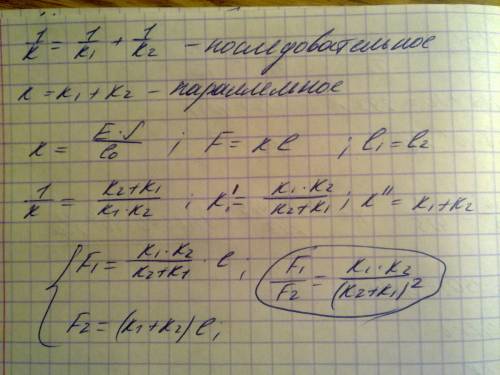 1/k = 1/k₁ + 1/k₂ - последовательное
k = k₁ + k₂ - параллельное
k = E·S/l₀ ; F = kl ; l₁ = l₂
1/k = k₂+k₁/k₁·k₂ ; k₁' = k₁·k₂/k₂+k₁ ; k'' = k₁+k₂
F₁ = k₁·k₂/k₂+k₁ · l ; F₁/F₂ = k₁·k₂/(k₂+k₁)²
F₂ = (k₁+k₂) l ;